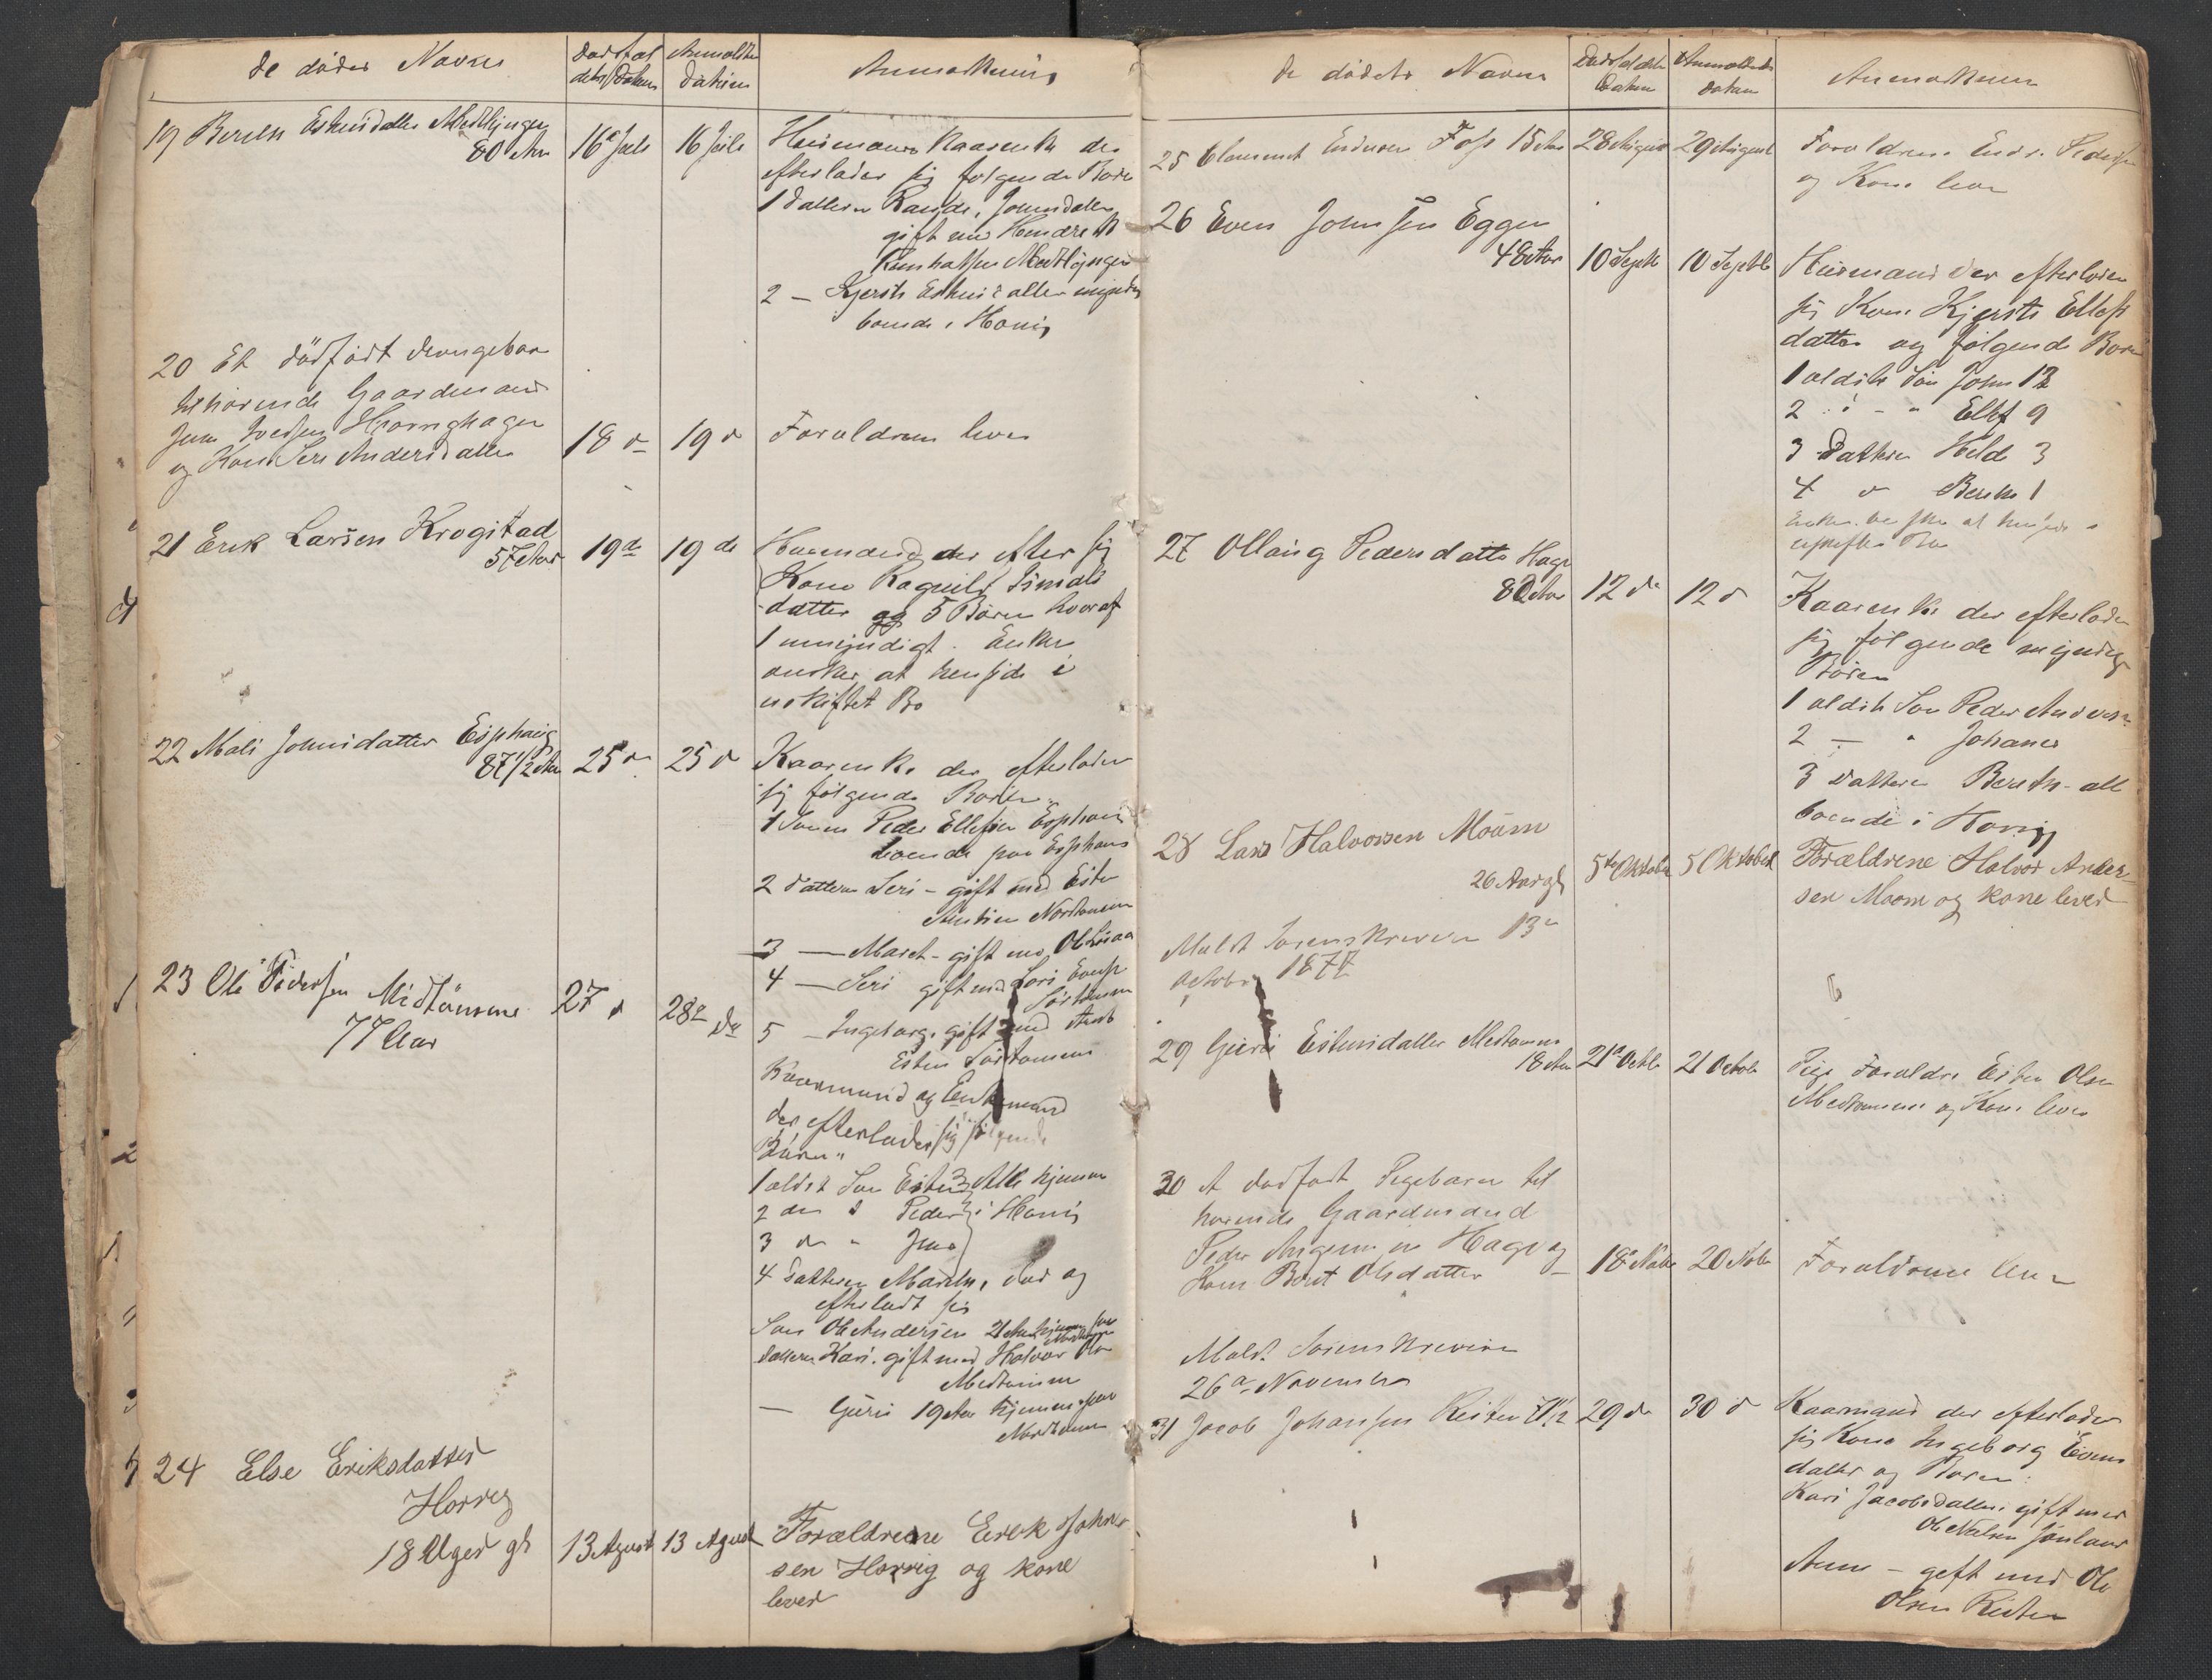 de dødes Navne
Dødsfal
dets Datum
Anmeldte
Datum
Anmerkning
19 Bereth Estensdatter Medlyngen
80 Aar
16de Juli
16 Juli
Huusmands Kaarenke der
efterlader sig følgende Børn
1 Datteren Randi Johnsdatter
gift med Hendrik
Medlyngen
2 — Kjersti Estensdatter myndig
boende i Horrig
20 Et dødfødt Drengebarn
tilhørende Gaardmand
Jens Horrighagen
og Kone Seri Andersdatter
18 d
19 d
Forældrene lever
21 Erik Larsen Krogstad
57 Aar
19 de
19 de
Huusmand der efter sig
Kone Ragnild Simons
datter og 5 Børn hvoraf
1 umyndigt. Enken
ønsker at hensidde i
uskiftet Bo
22 Mali Johnsdatter Esphaug
87 1/2 Aar
25 d
25 d
Kaarenke der efterlader
sig følgende Børn
1 Sønnen Peder Ellefsen Esphaug
boende paa Esphaug
2 Datteren Seri - gift med Esten
Nordtømme
3 — Maret - gift med Ole
4 — Seri gift med Lars
5 — Ingeborg, gift med
Esten Sørtømme
23 Ole Pedersen Midtømme
77 Aar
27 d
28de do
Kaarmand og Enkemand
der efterlader sig følgende
Børn
1 ældst Søn Esten Alle hjemme
2 den d Peder i Horrig
3 d " Jens
4 Datteren Mareth, død og
efterladt sig
Søn Ole Andersen 21 Aar hjemme paa
Datteren Kari. gift med Halvor Ols
Medtømme
— Guri 19 Aar hjemme paa
Nordtømme
24 Else Eriksdatter
Horrig
18 Uger gl
13 Agust
13 Agust
Forældrene Eerek Johns
sen Horrig og kone
lever
de dødes Navne
Dødsfaldets
Datum
Anmeldelses
Datum
Anmerkning
25 Clement Endresen Foss 15 Aar
28 August
29 August
Forældrene Endre Pedersen
og Kone lever
26 Even Johnsen Eggen
48 Aar
10 Septb
10 Septb
Huusmand der efterlader
sig Kone Kjersti Ellefs
datter og følgende Børn
1 ældste Søn John 12
2 " - " Ellef 9
3 Datter Hild 3
4 d Bereth 1
Enken ønsker at hensidde i
uskiftet Bo
27 Ollaug Pedersdatter Hage
82 Aar
12 d
12 d
Kaarenke der efterlader
sig følgende myndige
Børen
1 ældste Søn Peder Andersen
2 — " Johanes
3 Datteren Bereth - alle
boende i Horrig
28 Lars Halvorsen Moum
26 Aar gl
5te Oktober
5 Oktober
Forældrene Halvor Ander-
sen Moum og kone lever
Meldt Sorenskriveren 13d
October 1877
29 Guri Estensdatter Medtømme
18 Aar
21d Octbr
21 Octob
Pige Forældre Esten Olsen
Medtømme og Kone lever
30 et dødfødt Pigebarn til
hørende Gaardmand
Peder Hage og
Kone Berit Olsdatter
18d Novbr
20 Novbr
Forældrene lever
Meldt Sorenskriveren
26d November
31 Jacob Johansen Reiten
29 d
30 d
Kaarmand der efterlader
sig Kone Ingeborg Evens
datter og Børen:
Kari Jacobsdatter gift med
Ole Nielsen
Anne - gift med Ole
Olsen Reiten